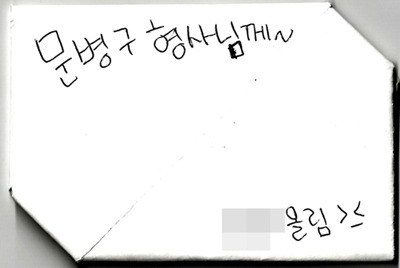 문병구 형사님께~
올림 >≤